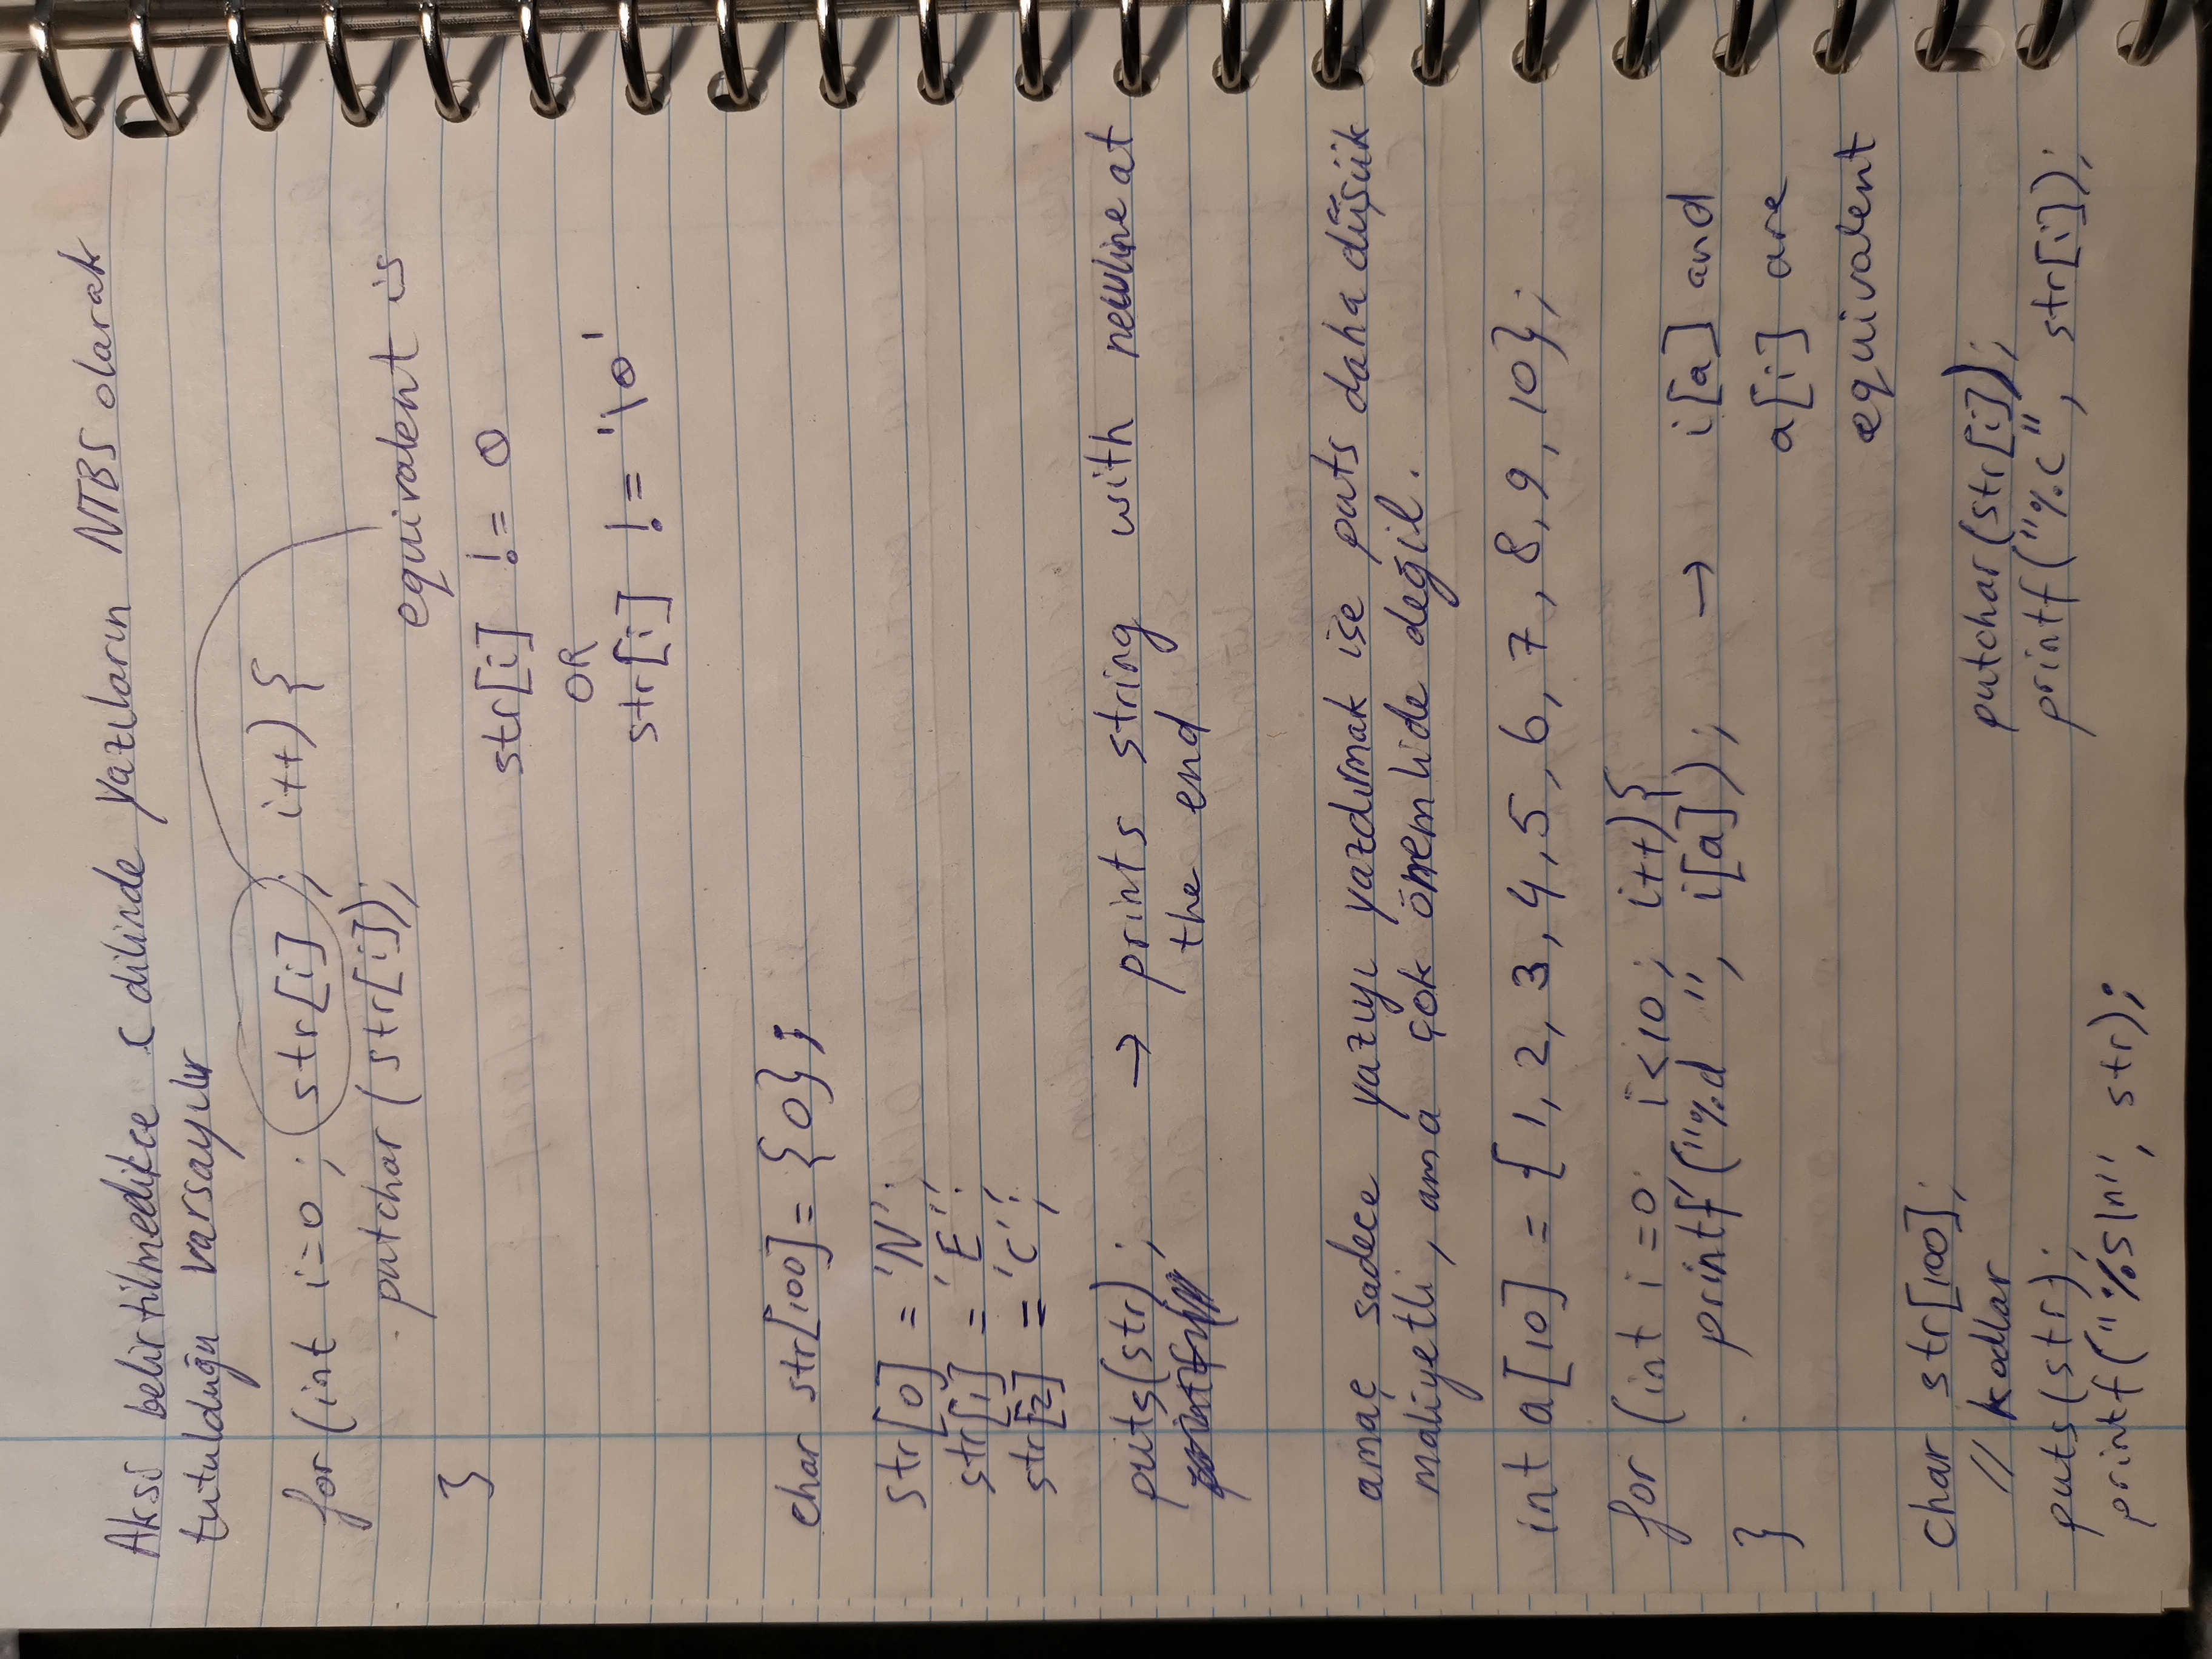 Aksi belirtilmedikçe C dilinde yazıların NTBS olarak
tutulduğu varsayılır
for (int i=0; str[i]; i++) {
putchar (str[i]);
}
equivalent is
str[i] != 0
OR
str[i] != '\0'
char str[100] = {0};
str[0] = 'N';
str[1] = 'E';
str[2] = 'C';
puts(str); → prints string with newline at
the end
amaç sadece yazıyı yazdırmak ise puts daha düşük
maliyetli, ama çok önemlide değil.
int a[10] = {1, 2, 3, 4, 5, 6, 7, 8, 9, 10};
for (int i=0; i<10; i++){
printf("%d ", i[a]); → i[a] and
}
a[i] are
equivalent
char str[100];
// kodlar
puts(str);
printf("%s\n", str);
putchar(str[i]);
printf("%c", str[i]);